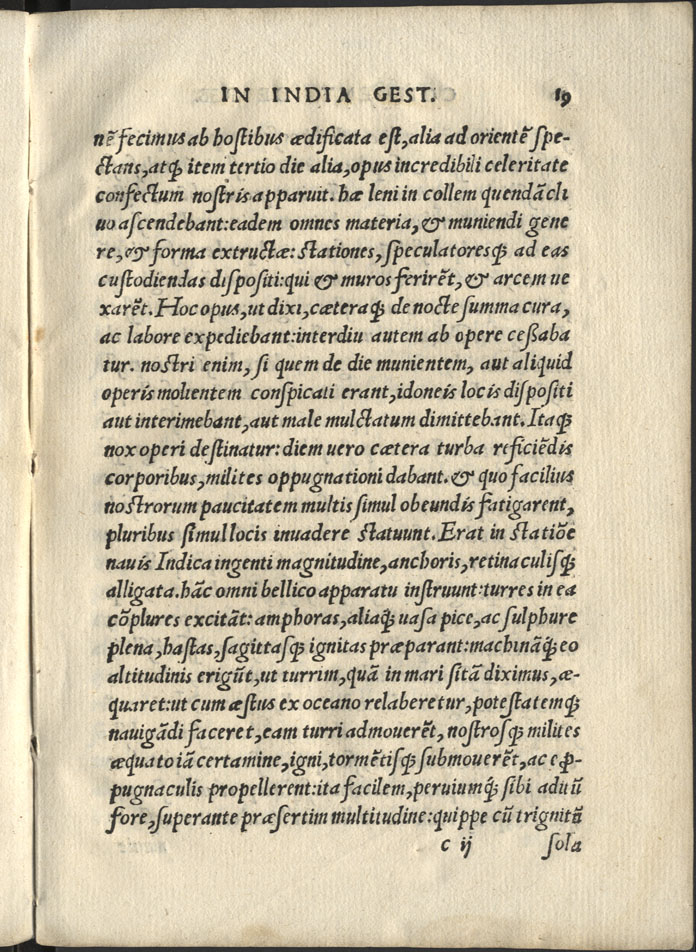 IN INDIA GEST. 19
nē fecimus ab hostibus ædificata est, alia ad orientē spe-
ctans, atq; item tertio die alia, opus incredibili celeritate
confectum nostris apparuit. hæ leni in collem quendā cli
uo ascendebant: eadem omnes materia, & muniendi gene
re, & forma extructæ: stationes, speculatoresq; ad eas
custodiendas dispositi: qui & muros ferirēt, & arcem ue
xarēt. Hoc opus, ut dixi, cæteraq; de nocte summa cura,
ac labore expediebant: interdiu autem ab opere ceßaba
tur. nostri enim, si quem de die munientem, aut aliquid
operis molientem conspicati erant, idoneis locis dispositi
aut interimebant, aut male mulctatum dimittebant. Itaq;
nox operi destinatur: diem uero cætera turba reficiēdis
corporibus, milites oppugnationi dabant. & quo facilius
nostrorum paucitatem multis simul obeundis fatigarent,
pluribus simul locis inuadere statuunt. Erat in statiōe
nauis Indica ingenti magnitudine, anchoris, retinaculisq;
alligata. hāc omni bellico apparatu instruunt: turres in ea
cōplures excitāt: amphoras, aliaq; uasa pice, ac sulphure
plena, hastas, sagittasq; ignitas præparant: machināq; eo
altitudinis erigūt, ut turrim, quā in mari sitā diximus, æ-
quaret: ut cum æstus ex oceano relaberetur, potestatemq;
nauigādi faceret, eam turri admouerēt, nostrosq; milites
æquato iā certamine, igni, tormētisq; submouerēt, ac e ꝓ-
pugnaculis propellerent: ita facilem, peruiumq; sibi aditū
fore, superante præsertim multitudine: quippe cū trigintā
c ij sola